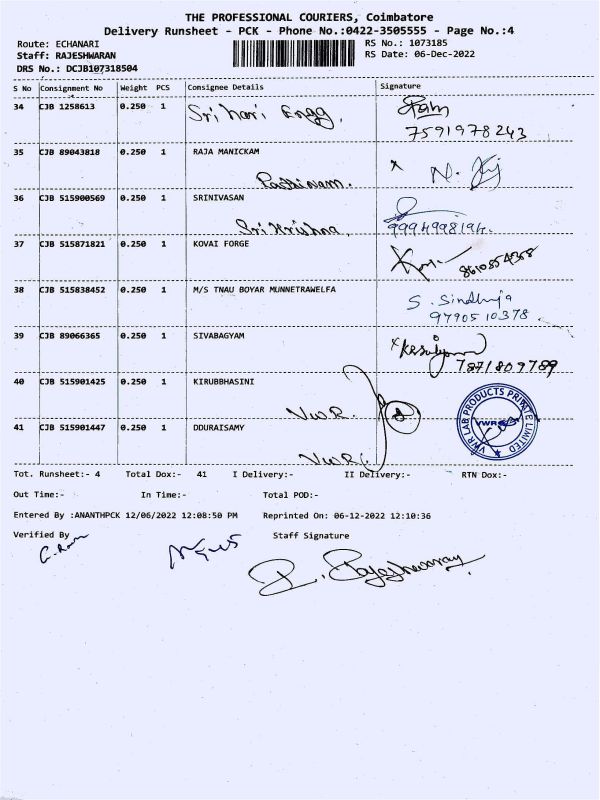 THE PROFESSIONAL COURIERS, Coimbatore
Delivery Runsheet - PCK - Phone No.:0422-3505555 - Page No.:4
Route: ECHANARI
RS No.: 1073185
Staff: RAJESHWARAN
RS Date: 06-Dec-2022
DRS No.: DCJB107318504
S No Consignment No Weight PCS Consignee Details Signature
34 CJB 1258613 0.250 1 Sri hari Engg.
7591978243
35 CJB 89043818 0.250 1 RAJA MANICKAM
x N.
36 CJB 515900569 0.250 1 SRINIVASAN
Sri Krishna 9994998194.
37 CJB 515871821 0.250 1 KOVAI FORGE
38 CJB 515838452 0.250 1 M/S TNAU BOYAR MUNNETRAWELFA
S. Sindhuja
9790510378.
39 CJB 89066365 0.250 1 SIVABAGYAM
7871809789
40 CJB 515901425 0.250 1 KIRUBBHASINI
VWR.
41 CJB 515901447 0.250 1 DDURAISAMY
VWR
VWR LAB PRODUCTS PRIVATE LIMITED
VWR
Tot. Runsheet:- 4 Total Dox:- 41 I Delivery:- II Delivery:- RTN Dox:-
Out Time:- In Time:- Total POD:-
Entered By :ANANTHPCK 12/06/2022 12:08:50 PM Reprinted On: 06-12-2022 12:10:36
Verified By Staff Signature